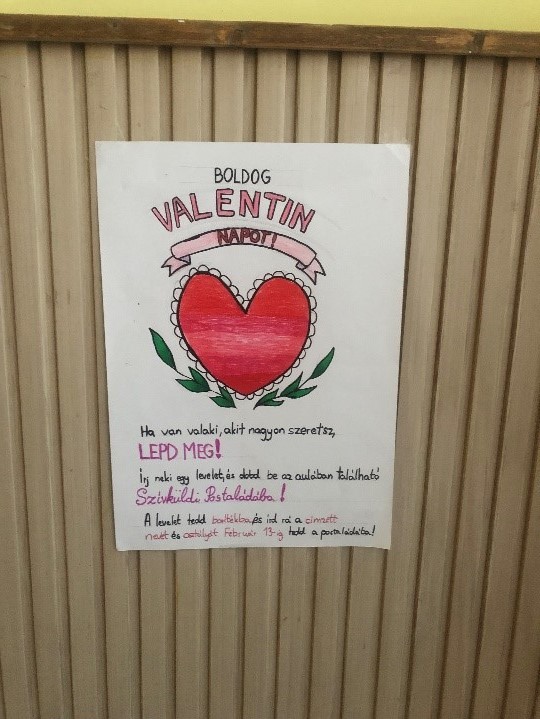 BOLDOG
VALENTIN
NAPOT!
Ha van valaki, akit nagyon szeretsz,
LEPD MEG!
Írj neki egy levelet, és dobd be az aulában található
Szívküldi Postaládába!
A levelet tedd borítékba, és írd rá a címzett
nevét és osztályát Február 13-ig tedd a postaládába!